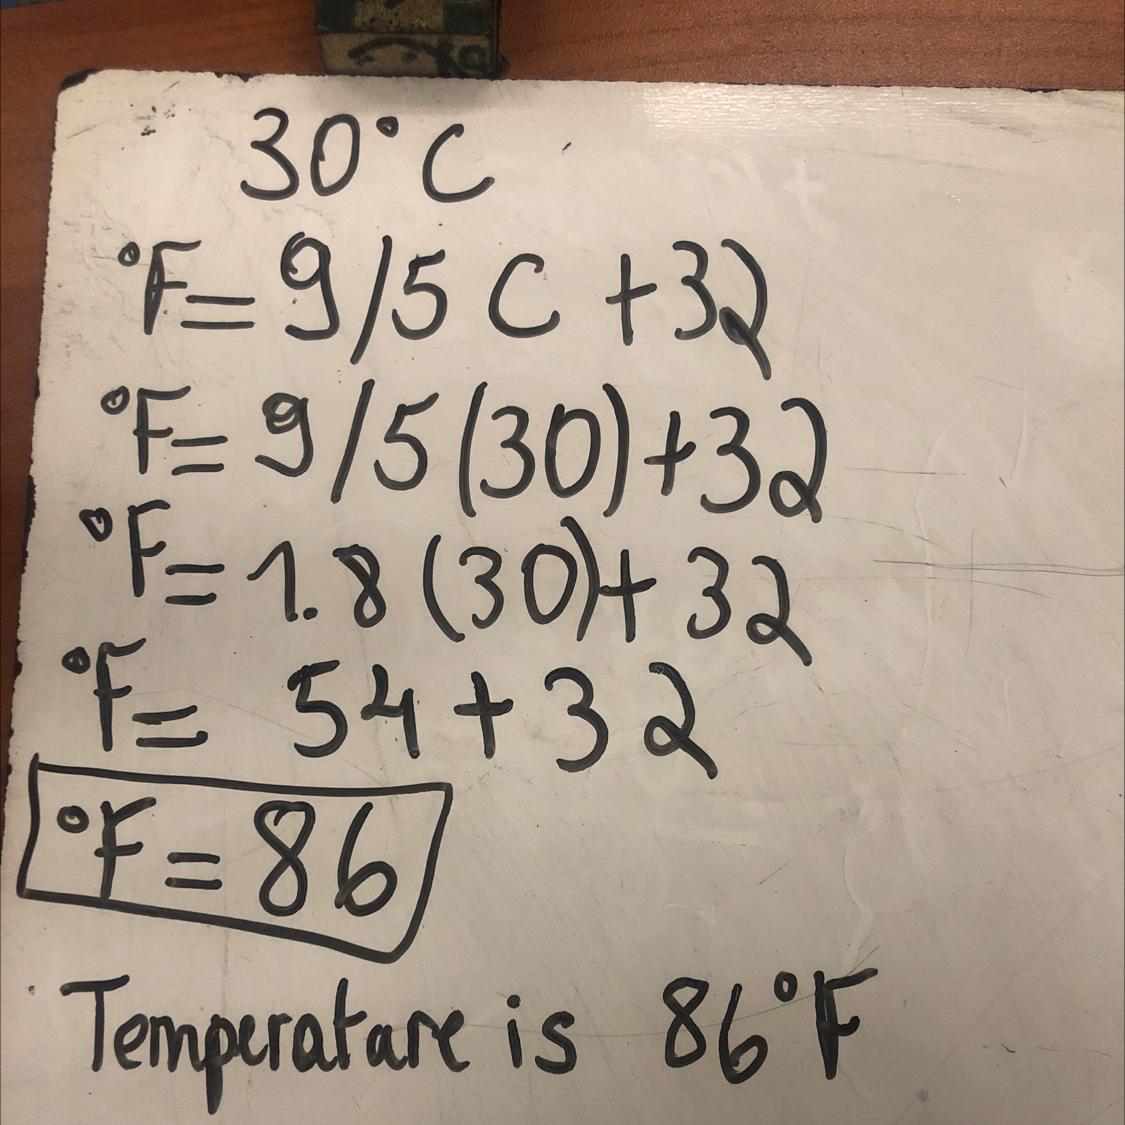 30°C
°F= 9/5 C +32
°F= 9/5(30)+32
°F= 1.8 (30)+ 32
°F= 54 + 32
°F = 86
Temperatare is 86°F